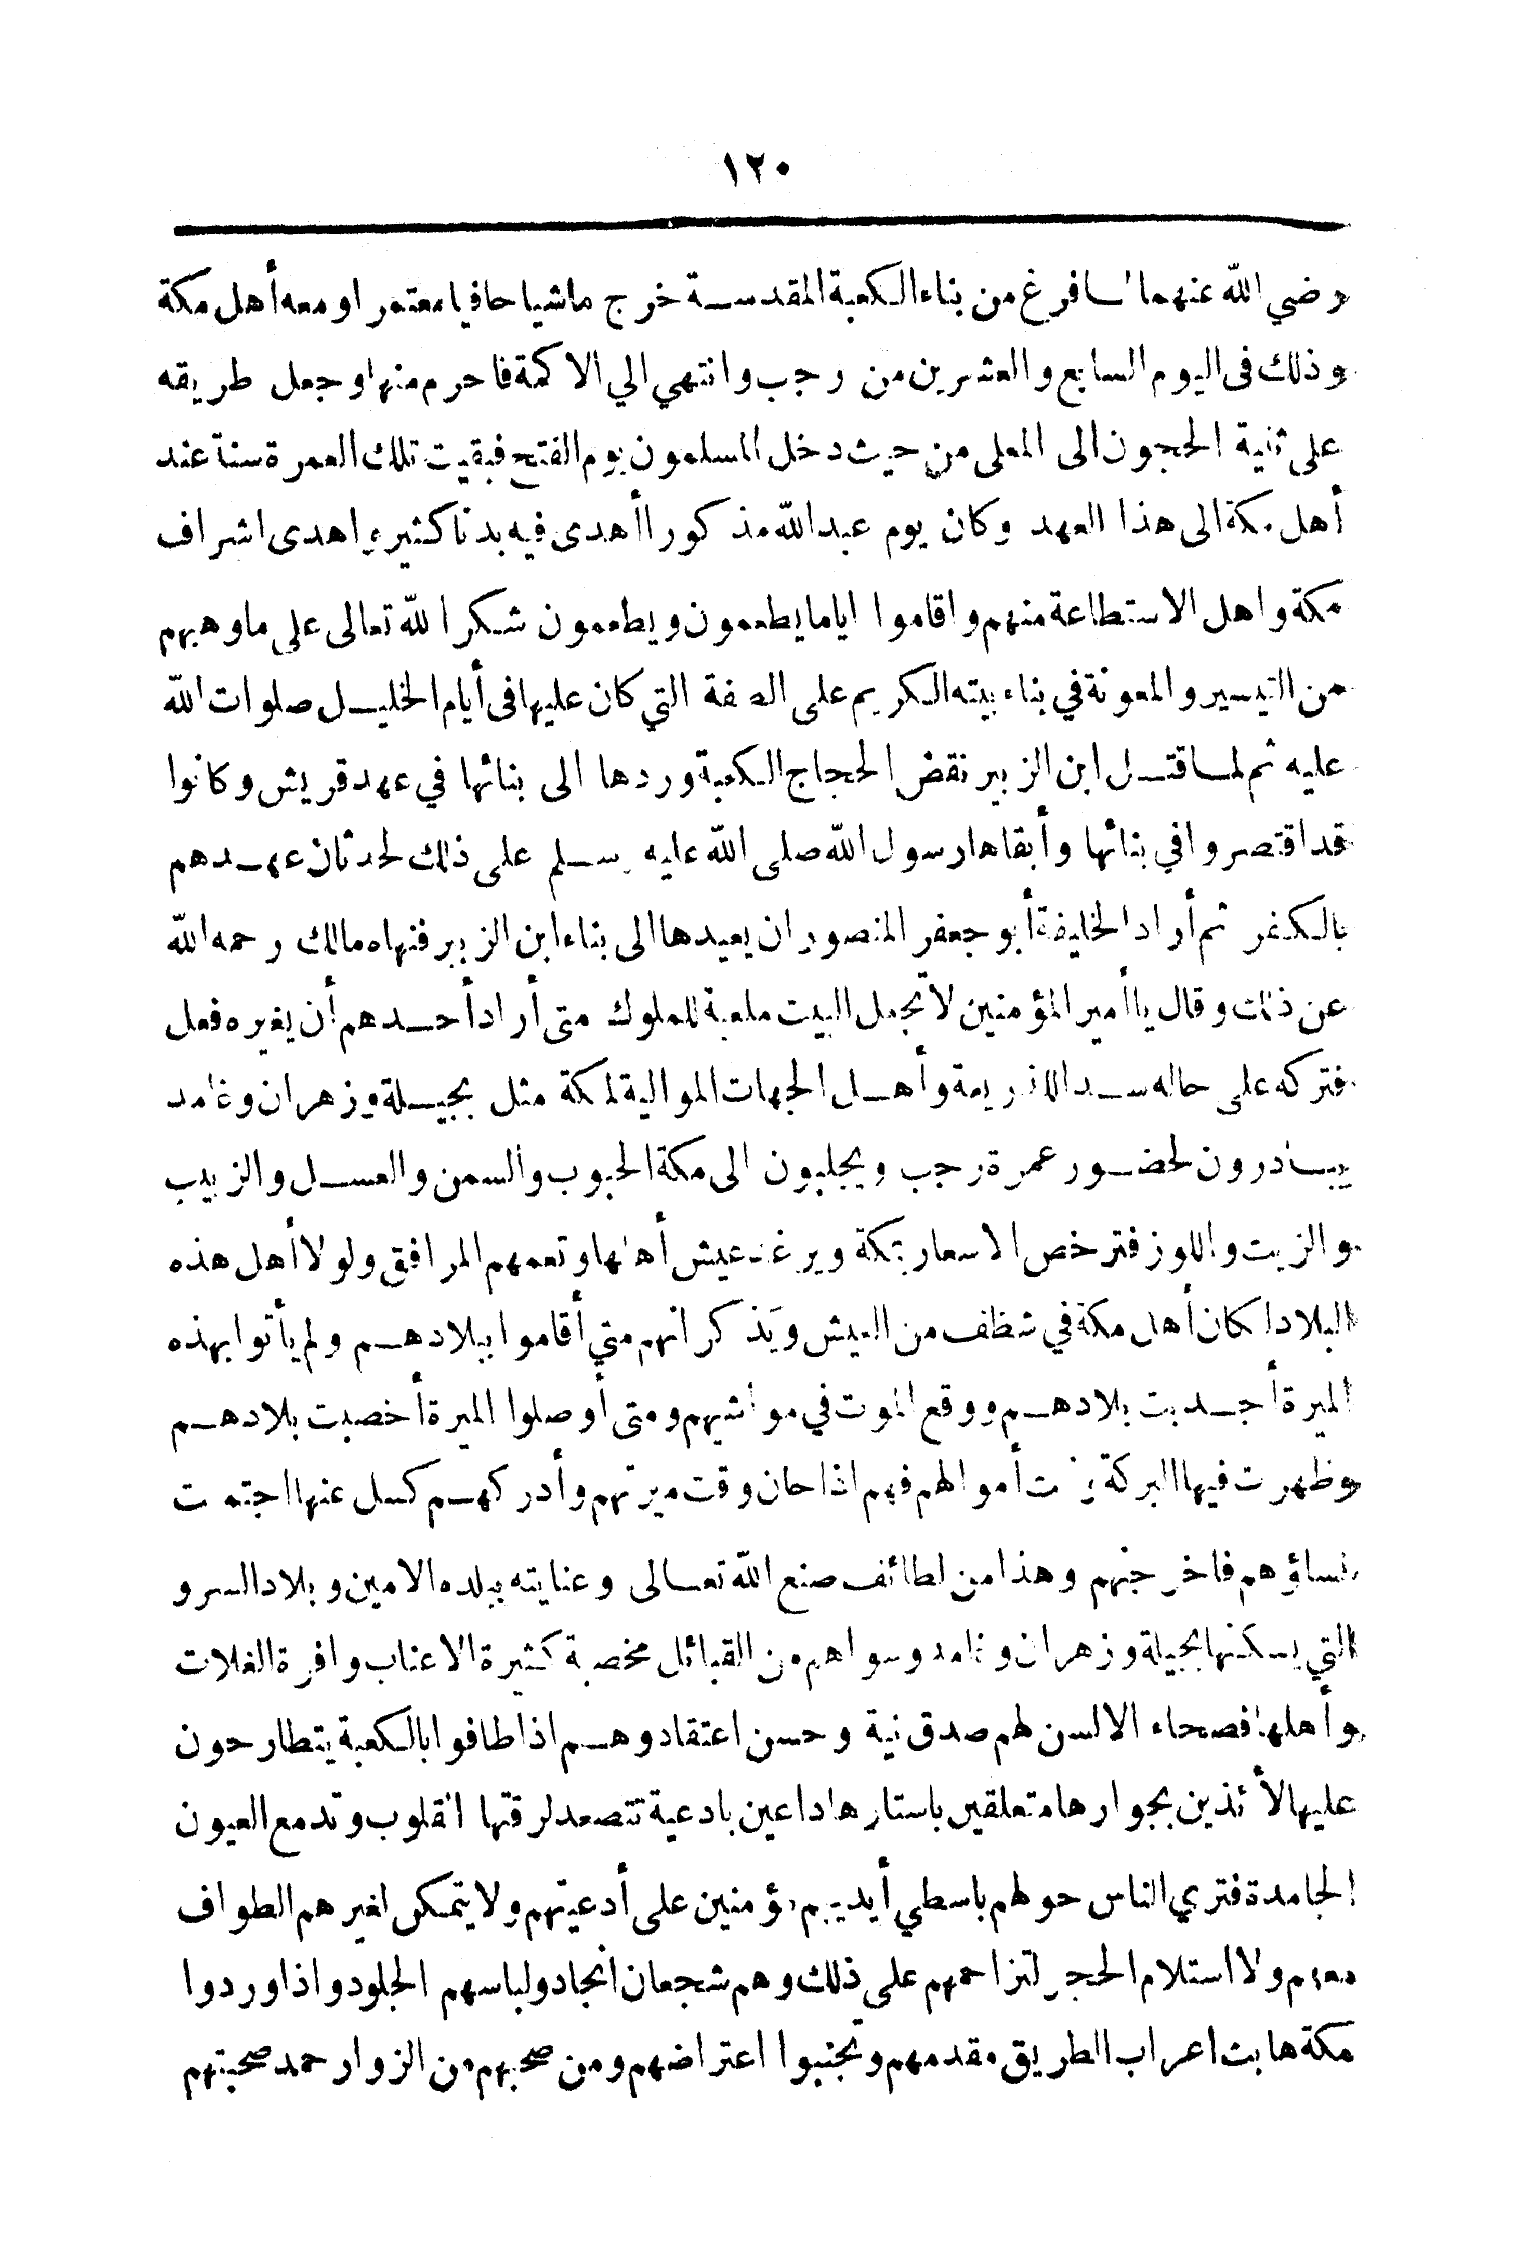 ١٢٠
رضي الله عنهما لما فرغ من بناء الكعبة المقدسة خرج ماشيا حافيا معتمرا ومعه أهل مكة
وذلك فى اليوم السابع والعشرين من رجب وانتهي الي الاكمة فاحرم منها وجعل طريقه
على ثنية الحجون الى المعلى من حيث دخل المسلمون يوم الفتح فبقيت تلك العمرة سنة عند
أهل مكة الى هذا العهد وكان يوم عبد الله مذكورا أهدى فيه بدنا كثيرة واهدى اشراف
مكة واهل الاستطاعة منهم واقاموا اياما يطعمون ويطعمون شكرا لله تعالى على ما وهبهم
من التيسير والمعونة في بناء بيته الكريم على الصفة التي كان عليها فى أيام الخليل صلوات الله
عليه ثم لما قتل ابن الزبير نقض الحجاج الكعبة وردها الى بنائها في عهد قريش وكانوا
قد اقتصروا في بنائها وأبقاها رسول الله صلى الله عليه وسلم على ذلك لحدثان عهدهم
بالكفر ثم أراد الخليفة أبو جعفر المنصور ان يعيدها الى بناء ابن الزبير فنهاه مالك رحمه الله
عن ذلك وقال يا أمير المؤمنين لا تجعل البيت ملعبة للملوك متى أراد أحدهم أن يغيره فعل
فتركه على حاله سدا للذريعة وأهل الجهات الموالية لمكة مثل بجيلة وزهران وغامد
يبادرون لحضور عمرة رجب ويجلبون الى مكة الحبوب والسمن والعسل والزبيب
والزيت واللوز فترخص الاسعار بمكة ويرغد عيش أهلها وتعمهم المرافق ولولا أهل هذه
البلاد لكان أهل مكة في شظف من العيش ويذكر انهم متي أقاموا ببلادهم ولم يأتوا بهذه
الميرة أجدبت بلادهم ووقع الموت في مواشيهم ومتى أوصلوا الميرة أخصبت بلادهم
وظهرت فيها البركة ونمت أموالهم فهم اذا حان وقت ميرتهم وأدركهم كسل عنها اجتمعت
نساؤهم فاخرجنهم وهذا من لطائف صنع الله تعالى وعنايته ببلده الامين وبلاد السرو
التي يسكنها بجيلة وزهران وغامد وسواهم من القبائل مخصبة كثيرة الاعناب وافرة الغلات
وأهلها فصحاء الالسن لهم صدق نية وحسن اعتقاد وهم اذا طافوا بالكعبة يتطارحون
عليها لائذين بجوارها متعلقين باستارها داعين بادعية تتصعد لرقتها القلوب وتدمع العيون
الجامدة فتري الناس حولهم باسطي أيديهم مؤمنين على أدعيتهم ولا يتمكن لغيرهم الطواف
معهم ولا استلام الحجر لتزاحمهم على ذلك وهم شجعان انجاد ولباسهم الجلود واذا وردوا
مكة هابت اعراب الطريق مقدمهم وتجنبوا اعتراضهم ومن صحبهم من الزوار حمد صحبتهم